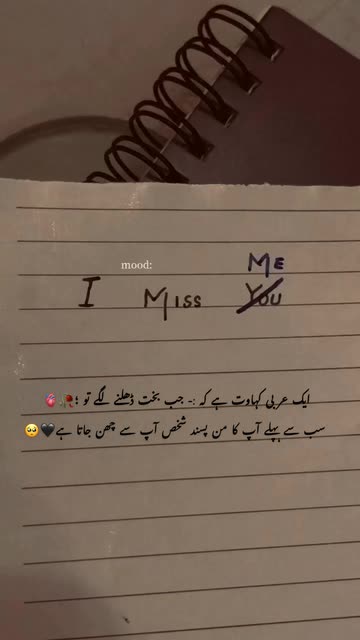 mood:
ME
I MISS YOU
ایک عربی کہاوت ہے کہ :- جب بخت ڈھلنے لگے تو ؛🥀🫀
سب سے پہلے آپ کا من پسند شخص آپ سے چھن جاتا ہے🖤🥺